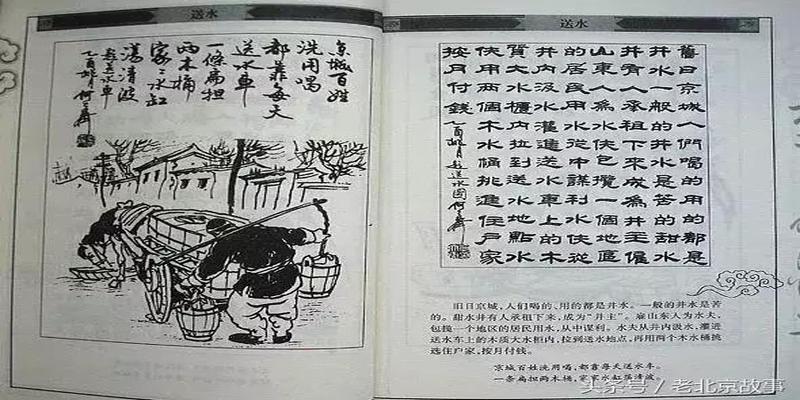 送水
京城百姓
洗用喝
都靠每天
送水車
一條扁担
两木桶
家々水缸
蕩清波
送水
舊日京城人們喝的用的都是
井水一般的井水是苦的甜水
井有人承租下來成為井主僱
山東人為水伕包攬一個地區
的居民用水從中謀利水伕從
井内汲水灌進送水車上的木
質大水櫃内拉到送水地點水
伕用两個木水桶挑進住户家
按月付錢
旧日京城,人们喝的、用的都是井水。一般的井水是苦
的。甜水井有人承租下来,成为“井主”。雇山东人为水夫,
包揽一个地区的居民用水,从中谋利。水夫从井内汲水,灌进
送水车上的木质大水柜内,拉到送水地点,再用两个木水桶挑
进住户家,按月付钱。
京城百姓洗用喝,都靠每天送水车。
一条扁担两木桶,家家水缸荡清波。
头条号/老北京故事